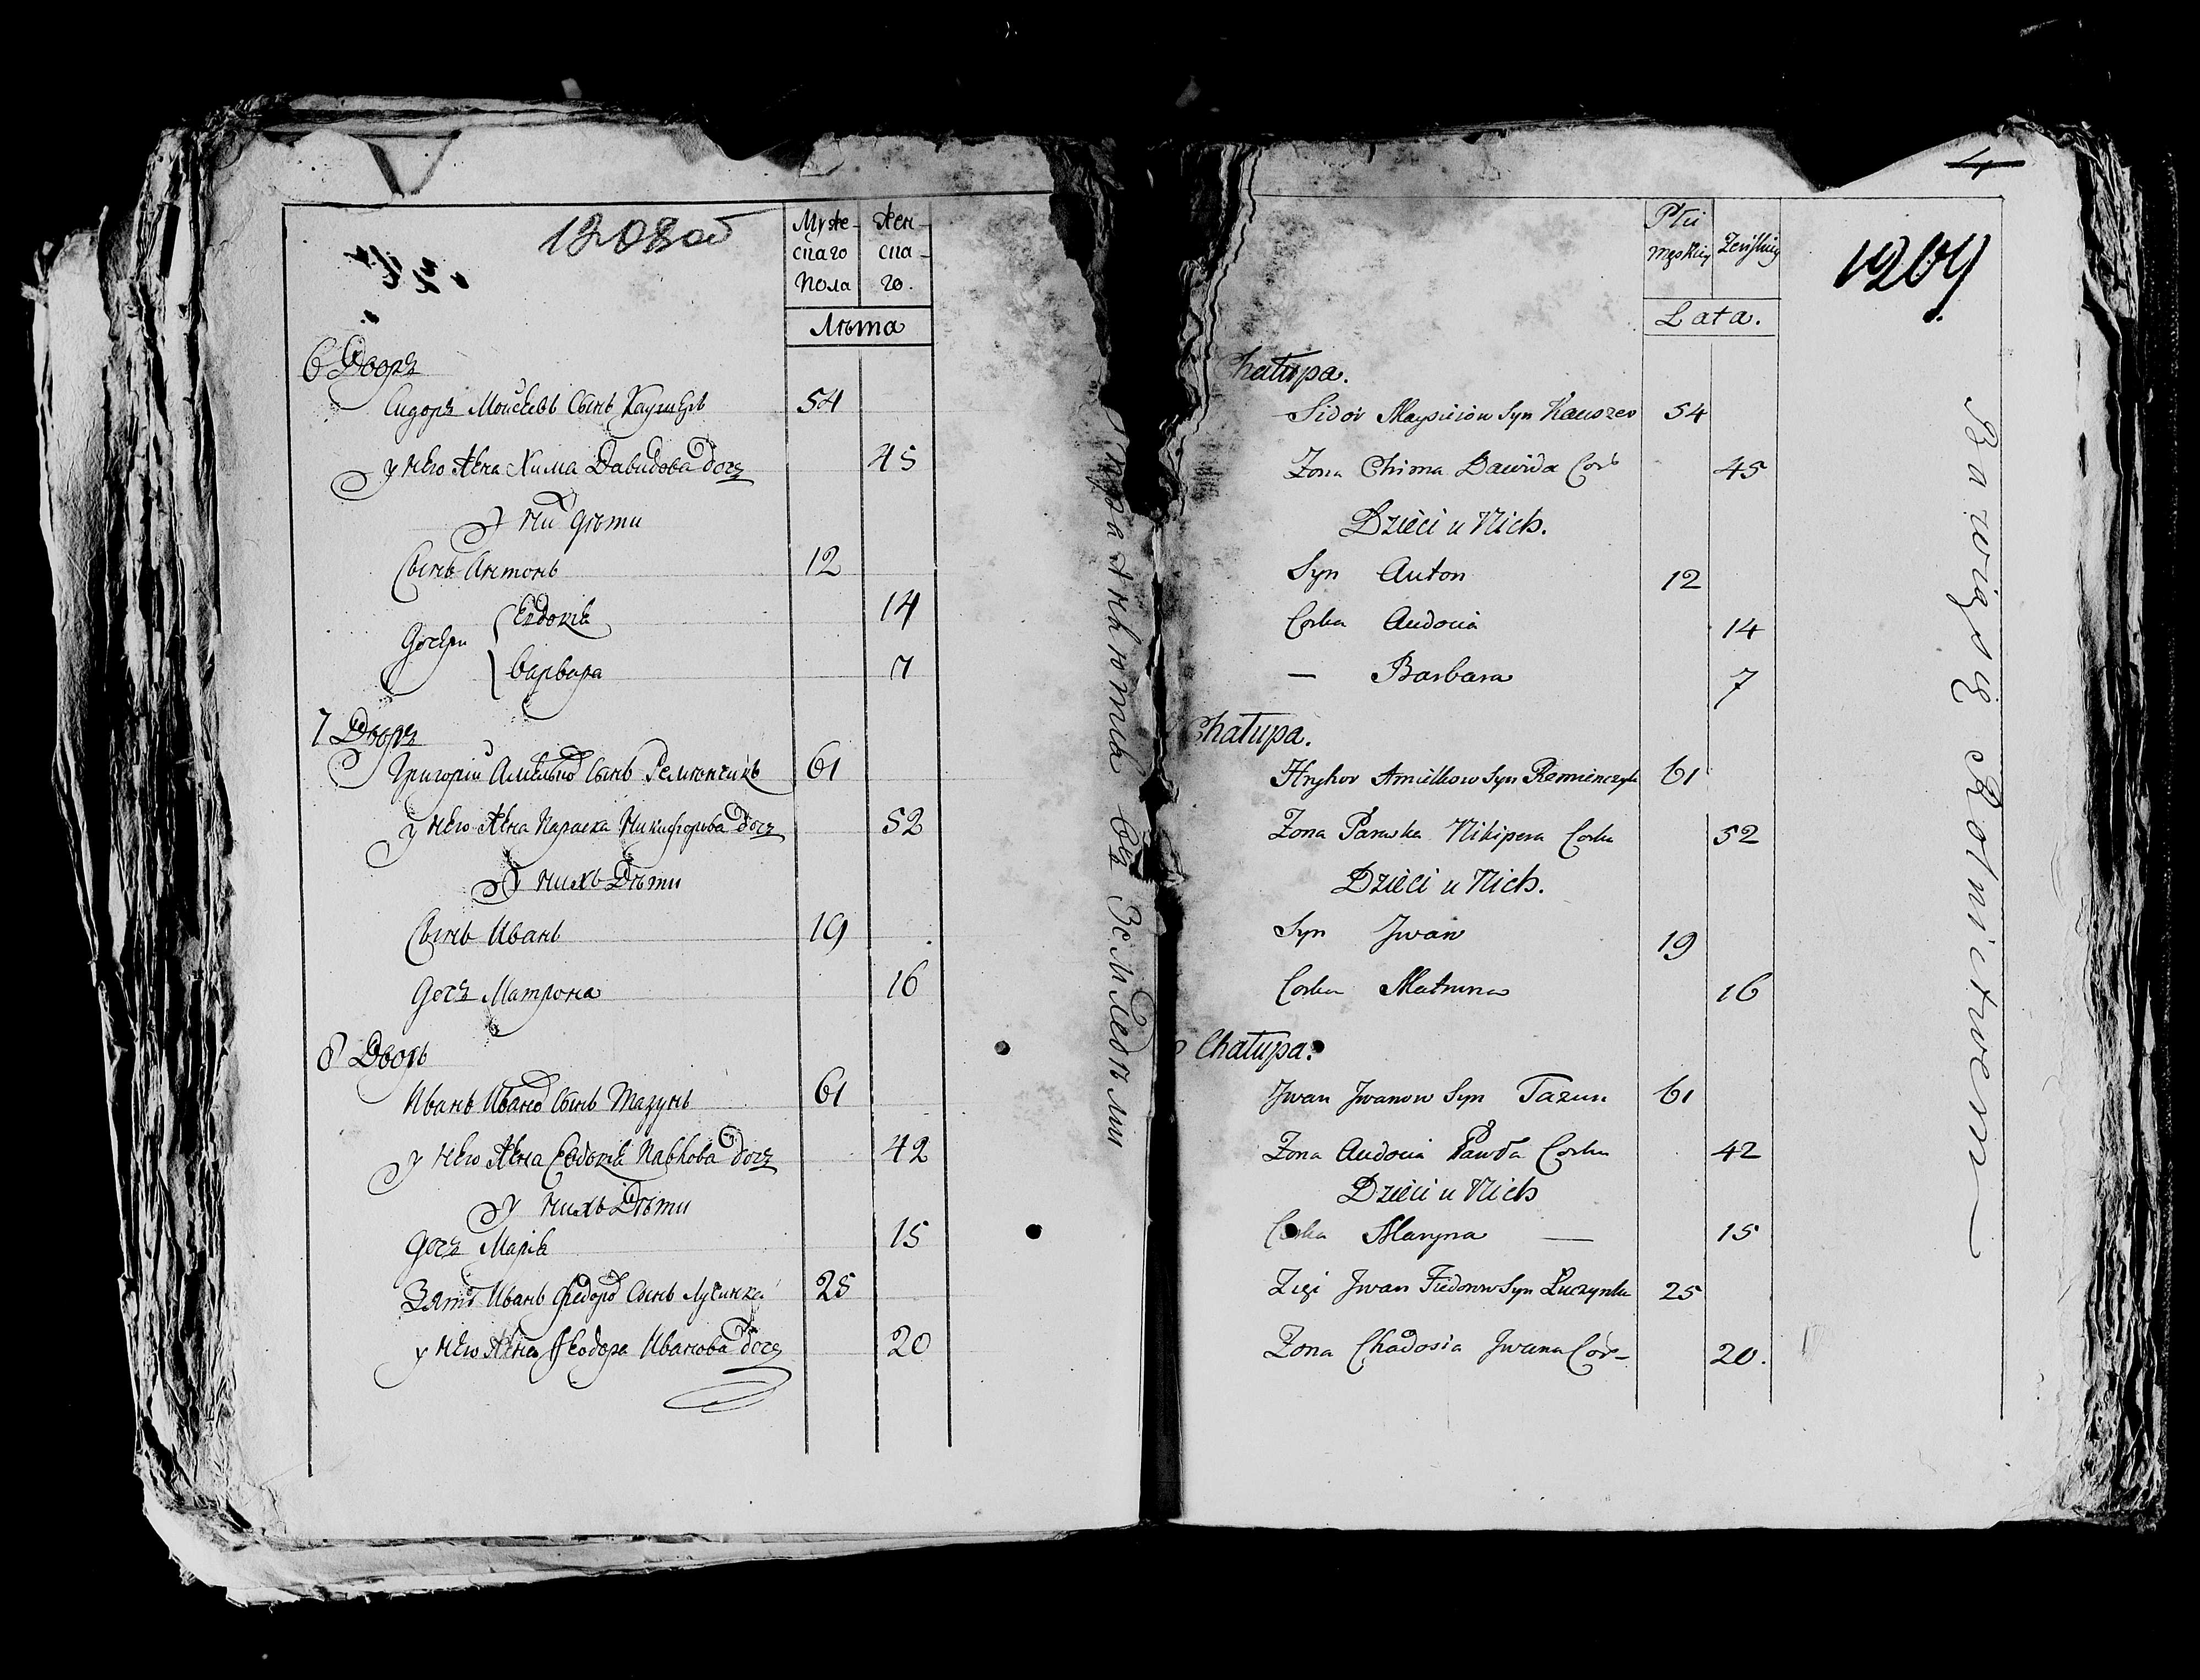 1208 об
Муже- Жен-
скаго ска-
Пола го.
Лѣта
6 Дворъ
Сидоръ Моисеевъ Сынъ 54
у него Жена Хима Давидова дочь 45
У ни дѣти
Сынъ Антонъ 12
Дочери Евдокія 14
Варвара 7
7 Дворъ
Григорій Амелько Сынъ Ременчикъ 61
у него Жена Параска Никифорова дочь 52
У нихъ Дѣти
Сынъ Иванъ 19
Дочь Матрона 16
8 Дворъ
Иванъ Ивано Сынъ Тазунъ 61
у него Жена Евдокія Павлова дочь 42
У нихъ Дѣти
Дочь Марія 15
Зять Иванъ Федоро Сынъ Лучинка 25
у него Жена Феодора Иванова дочь 20
Упражняются въ Земледѣліи
4
1209
Płci
męskiey Żeńskiey
Lata.
Chałupa.
Sidor Maysieiow Syn Kauszer 54
Zona Chima Dawida Cor 45
Dzieci u Nich.
Syn Anton 12
Corka Audocia 14
— Barbara 7
Chałupa.
Hryhor Amielkow Syn Remienczyk 61
Zona Paraska Nikipera Corka 52
Dzieci u Nich.
Syn Jwan 19
Corka Matruna 16
Chałupa.
Jwan Jwanow Syn Tazun 61
Zona Audocia Pawła Corka 42
Dzieci u Nich
Corka Maryna — 15
Zięć Jwan Fiedorow Syn Łuczynka 25
Zona Chadosia Jwana Cor- 20.
Bawią się Rolnictwem